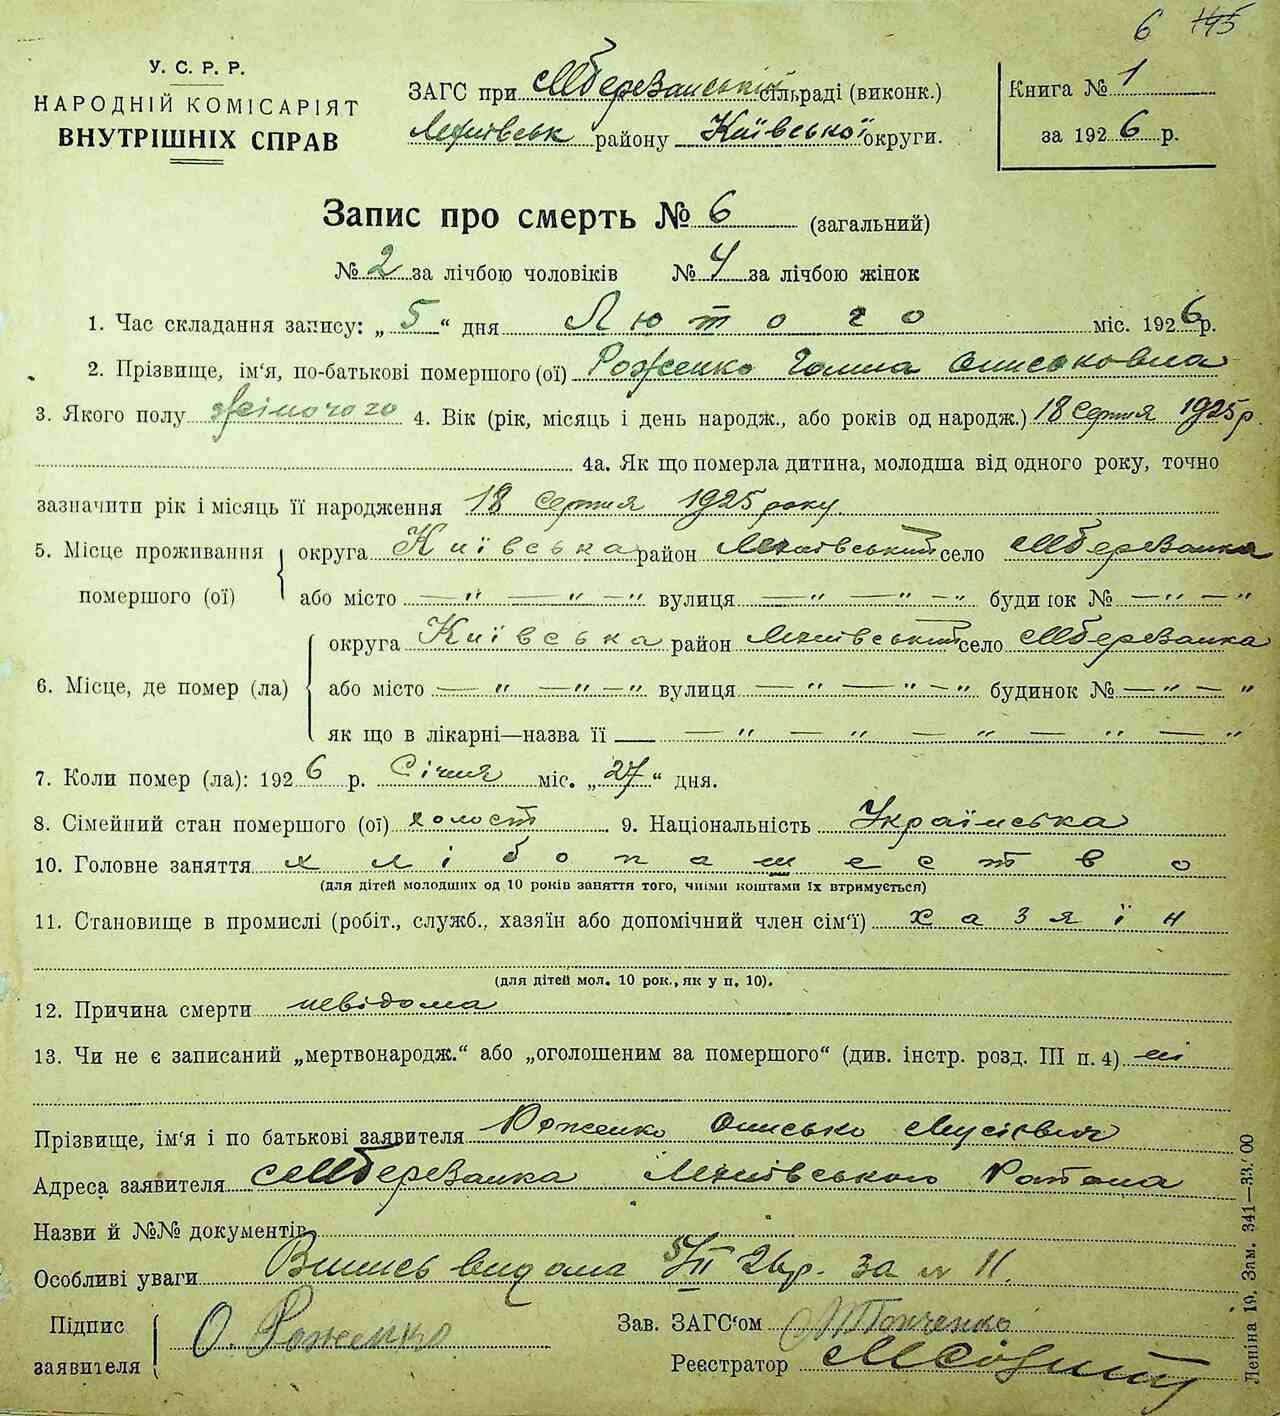 6 145
У. С. Р. Р.
НАРОДНІЙ КОМІСАРІЯТ
ВНУТРІШНІХ СПРАВ
ЗАГС при МБерезанській сільраді (виконк.)
району Київської округи.
Книга № 1
за 1926 р.
Запис про смерть № 6 (загальний)
№ 2 за лічбою чоловіків № 4 за лічбою жінок
1. Час складання запису: „5“ дня Лютого міс. 1926 р.
2. Прізвище, ім'я, по-батькові помершого (ої) Роженко Галина Ониськовна
3. Якого полу жіночого 4. Вік (рік, місяць і день народж., або років од народж.) 18 Серпня 1925 р.
4а. Як що померла дитина, молодша від одного року, точно
зазначити рік і місяць її народження 18 Серпня 1925 року
5. Місце проживання помершого (ої) округа Київська район село МБерезанка
або місто —„—„—„ вулиця —„—„—„ будинок № —„—„
6. Місце, де помер (ла) округа Київська район село МБерезанка
або місто —„—„—„ вулиця —„—„—„ будинок № —„—„
як що в лікарні—назва її —„—„—„—„—„
7. Коли помер (ла): 1926 р. Січня міс. „27“ дня.
8. Сімейний стан помершого (ої) холост 9. Національність Українська
10. Головне заняття хлібопашество
(для дітей молодших од 10 років заняття того, чиїми коштами їх втримується)
11. Становище в промислі (робіт., служб., хазяїн або допомічний член сім'ї) хазяїн
(для дітей мол. 10 рок., як у п. 10).
12. Причина смерти невідома
13. Чи не є записаний „мертвонародж.“ або „оголошеним за помершого“ (див. інстр. розд. III п. 4) ні
Прізвище, ім'я і по батькові заявителя Роженко Онисько Мусієвич
Адреса заявителя МБерезанка Району
Назви й №№ документів
Особливі уваги Випись видана 5/II 26р. за № 11.
Підпис заявителя О. Роженко
Зав. ЗАГС'ом
Реєстратор
Леніна 19. Зам. 341—33.000